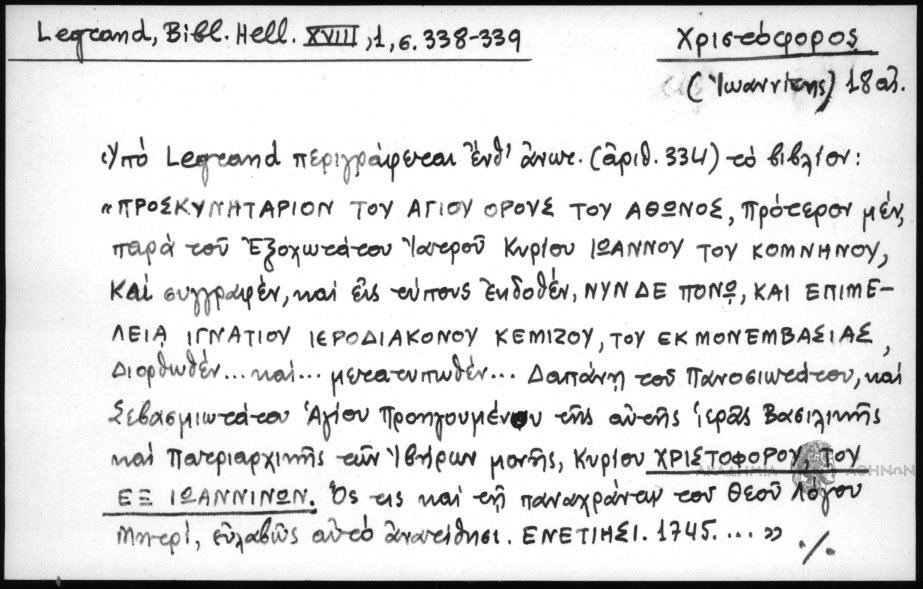 Legrand, Bibl. Hell. XVIII, 1, σ. 338-339
Χριστόφορος
(Ἰωαννίτης) 18 αἰ.
Ὑπό Legrand περιγράφεται ἐνθ' ἀνωτ. (ἀριθ. 334) τό βιβλίον:
«ΠΡΟΣΚΥΝΗΤΑΡΙΟΝ ΤΟΥ ΑΓΙΟΥ ΟΡΟΥΣ ΤΟΥ ΑΘΩΝΟΣ, πρότερον μέν,
παρά τοῦ Ἐξοχωτάτου Ἰατροῦ Κυρίου ΙΩΑΝΝΟΥ ΤΟΥ ΚΟΜΝΗΝΟΥ,
Καί συγγραφέν, καί εἰς τύπους ἐκδοθέν, ΝΥΝ ΔΕ ΠΟΝῼ, ΚΑΙ ΕΠΙΜΕ-
ΛΕΙᾼ ΙΓΝΑΤΙΟΥ ΙΕΡΟΔΙΑΚΟΝΟΥ ΚΕΜΙΖΟΥ, ΤΟΥ ΕΚ ΜΟΝΕΜΒΑΣΙΑΣ,
Διορθωθέν... καί... μετατυπωθέν... Δαπάνῃ τοῦ Πανοσιωτάτου, καί
Σεβασμιωτάτου Ἁγίου Προηγουμένου τῆς αὐτῆς ἱερᾶς Βασιλικῆς
καί Πατριαρχικῆς τῶν Ἰβήρων μονῆς, Κυρίου ΧΡΙΣΤΟΦΟΡΟΥ, ΤΟΥ
ΑΚΑΔΗΜΙΑ ΑΘΗΝΩΝ
ΕΞ ΙΩΑΝΝΙΝΩΝ. Ὅς τις καί τῇ παναχράντῳ τοῦ Θεοῦ Λόγου
Μητρί, εὐλαβῶς αὐτό ἀνατίθησι. ΕΝΕΤΙΗΣΙ. 1745. ... »
./.